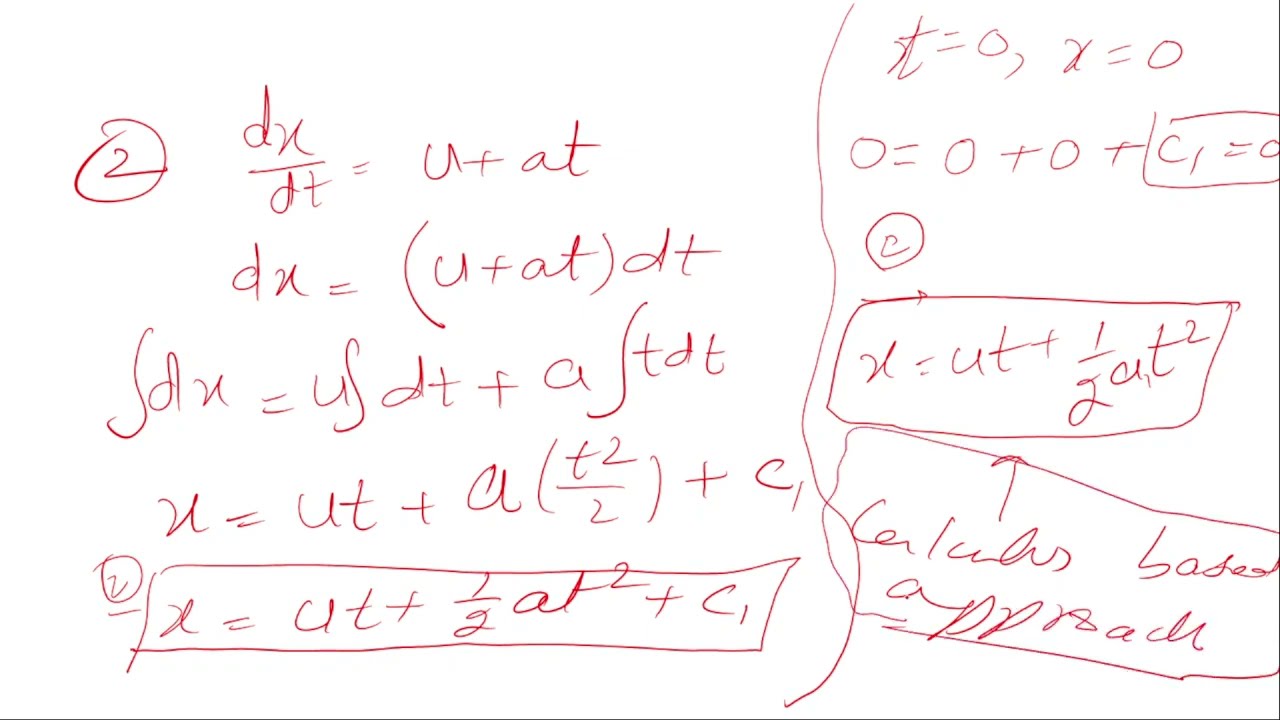 ② dx/dt = u + at
dx = (u + at) dt
∫dx = u∫dt + a∫t dt
x = ut + a(t²/2) + C₁
ⓥ x = ut + 1/2 at² + C₁
t = 0, x = 0
0 = 0 + 0 + C₁ = 0
x = ut + 1/2 at²
Calculus based
approach